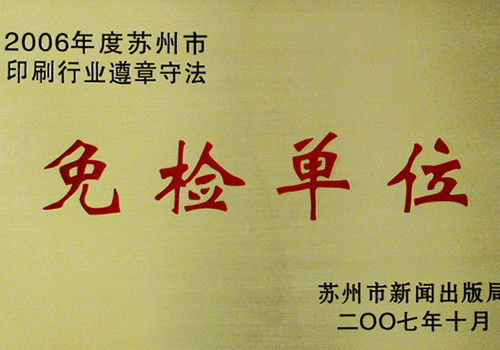 2006年度苏州市
印刷行业遵章守法
免检单位
苏州市新闻出版局
二〇〇七年十月